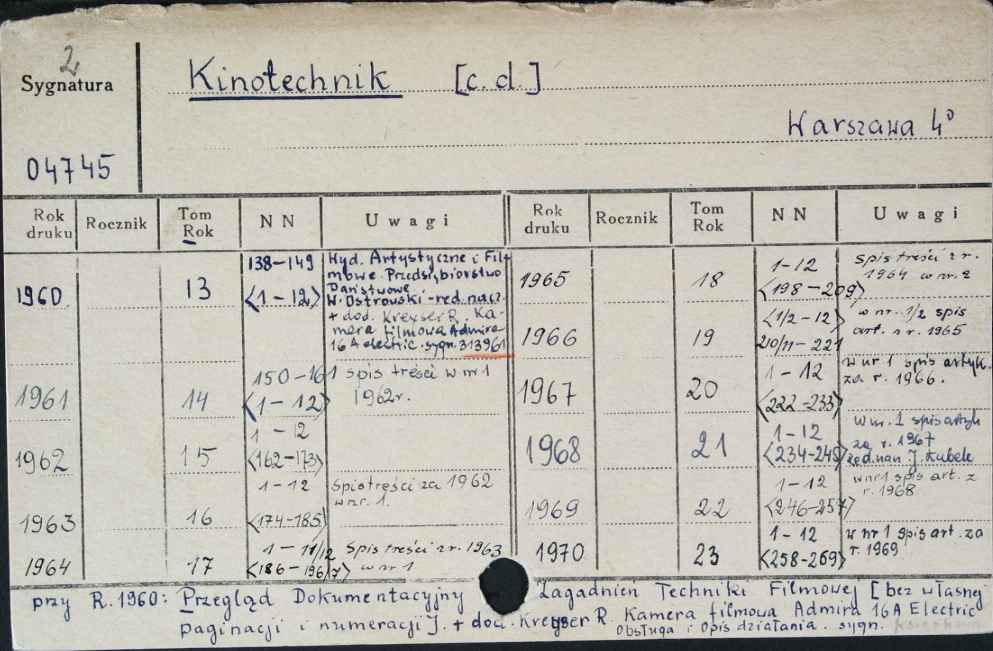 2
Sygnatura
Kinotechnik [c.d.]
Warszawa 4°
04745
Rok druku Rocznik Tom Rok NN Uwagi Rok druku Rocznik Tom Rok NN Uwagi
1960. 13 138-149
<1-12>
Wyd. Artystyczne i Fil-
mowe. Przedsiębiorstwo
Państwowe
W. Ostrowski - red. nacz.
+ dod. Kreyser R. Ka-
mera filmowa Admira
16 A electric. sygn. 313961
1961 14 150-161
<1-12>
spis treści w nr 1
1962r.
1962 15 1-12
<162-173>
1963 16 1-12
<174-185>
Spis treści za 1962
w nr. 1.
1964 17 1-11/12
<186-196/7>
Spis treści z r. 1963
w nr 1
1965 18 1-12
<198-209>
spis treści z r.
1964 w nr. 2
1966 19 <1/2-12>
210/11-221
w nr. 1/2 spis
art. z r. 1965
1967 20 1-12
<222-233>
w nr 1 spis artyk.
za r. 1966.
1968 21 1-12
<234-245>
w nr. 1 spis artyk
za r. 1967
J. Kubele
1969 22 1-12
<246-257>
w nr 1 spis art. z
r. 1968
1970 23 1-12
<258-269>
w nr 1 spis art. za
r. 1969
przy R. 1960: Przegląd Dokumentacyjny Zagadnień Techniki Filmowej [bez własnej
paginacji i numeracji]. + dod. Kreyser R. Kamera filmowa Admira 16 A Electric
Obsługa i opis działania. sygn.